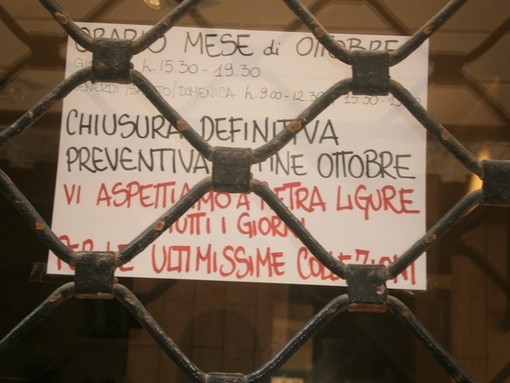 ORARIO MESE di OTTOBRE
h. 15.30 - 19.30
/DOMENICA h. 9.00 - 12.30 15.30 -
CHIUSURA DEFINITIVA
PREVENTIVA FINE OTTOBRE
VI ASPETTIAMO A PIETRA LIGURE
TUTTI I GIORNI
PER LE ULTIMISSIME COLLEZIONI